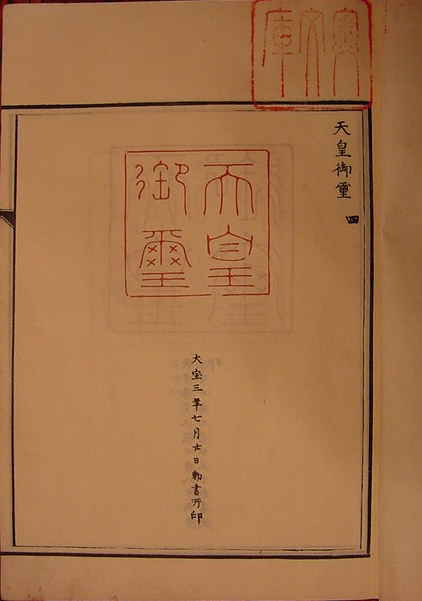 文庫
天皇御璽 四
天皇
御璽
大宝三年七月廿日勅書所印